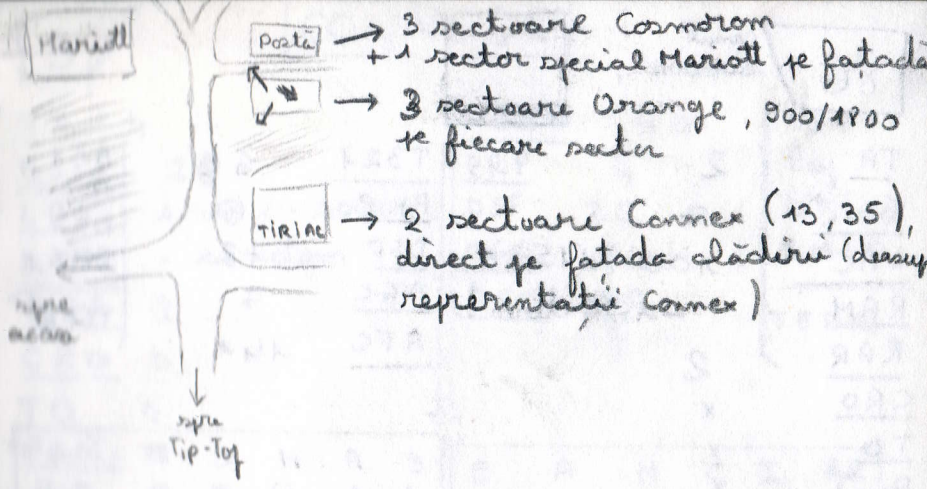 Mariott
Postă → 3 sectoare Cosmorom
+ 1 sector special Mariott pe fațadă
→ 3 sectoare Orange, 900/1800
pe fiecare sector
TIRIAC → 2 sectoare Connex (13, 35),
direct pe fațada clădirii (deasup
reprezentații Connex)
spre
acasa
spre
Tip-Top